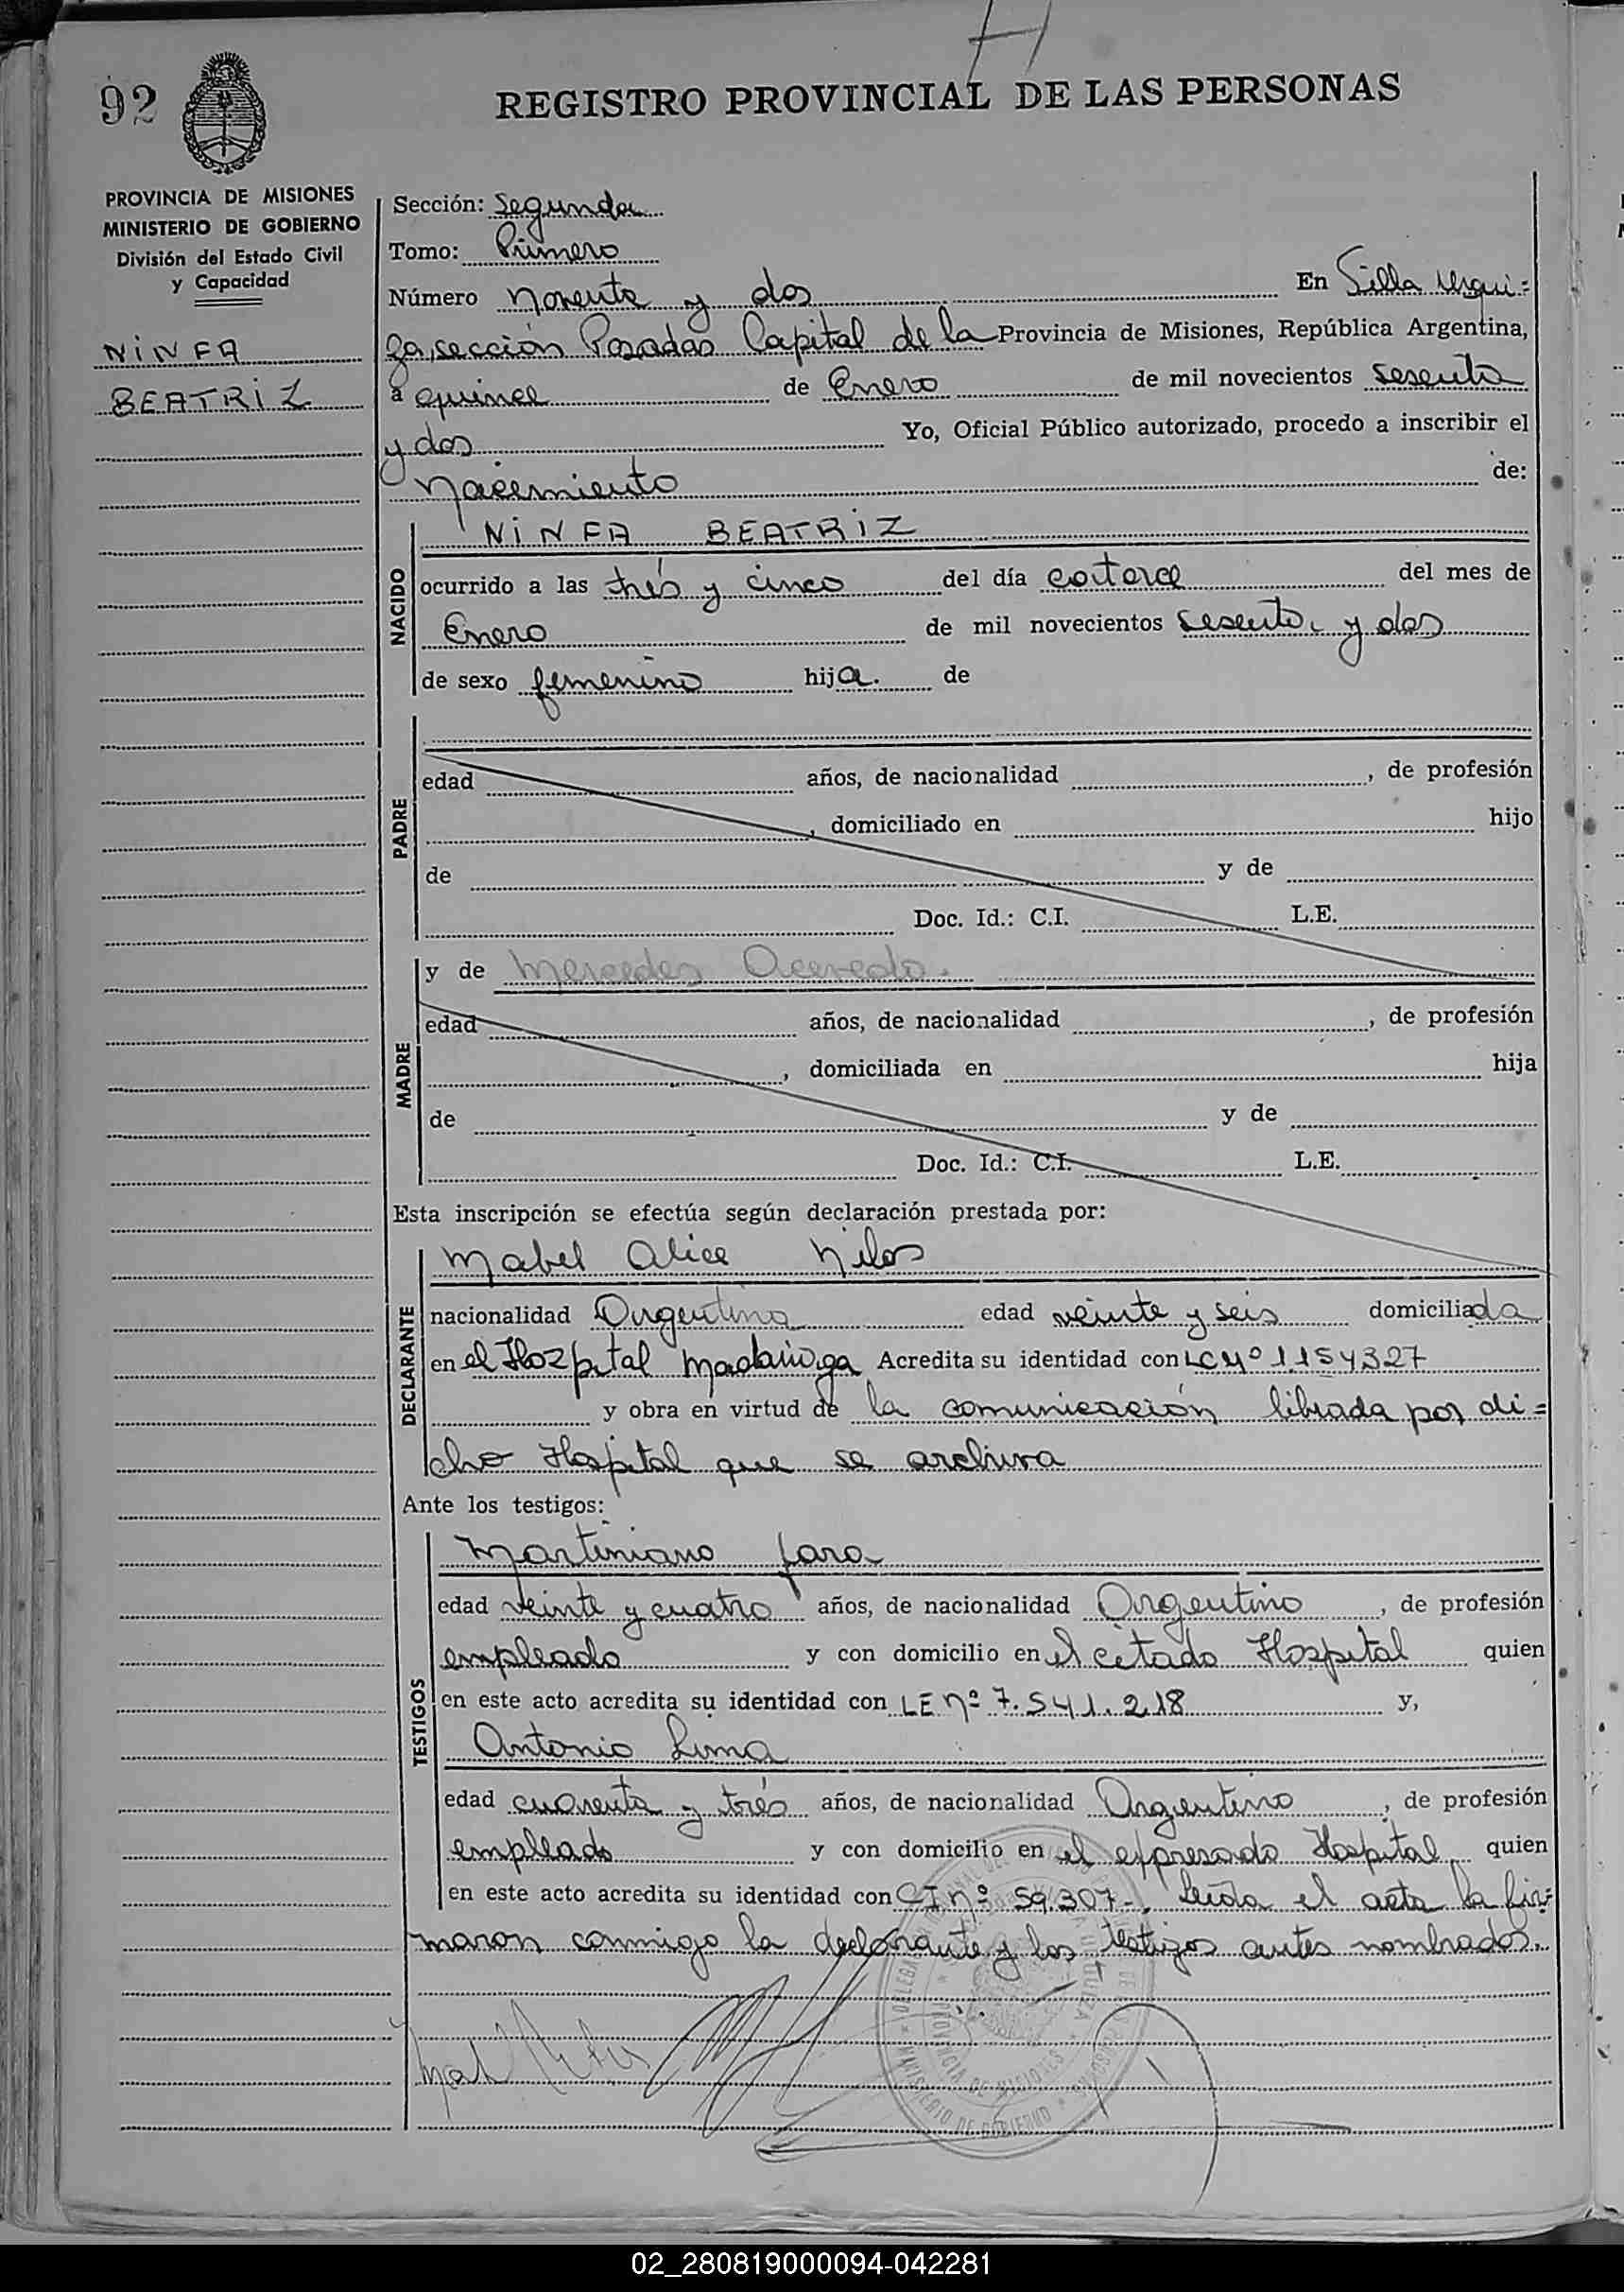 92
REGISTRO PROVINCIAL DE LAS PERSONAS
PROVINCIA DE MISIONES
MINISTERIO DE GOBIERNO
División del Estado Civil
y Capacidad
NINFA
BEATRIZ
Sección: Segunda
Tomo: Primero
Número noventa y dos En Villa Urqui=
za, sección Posadas Capital de la Provincia de Misiones, República Argentina,
a quince de Enero de mil novecientos sesenta
y dos Yo, Oficial Público autorizado, procedo a inscribir el
nacimiento de:
NACIDO
NINFA BEATRIZ
ocurrido a las trés y cinco del día catorce del mes de
Enero de mil novecientos sesenta y dos
de sexo femenino hija. de
PADRE
edad años, de nacionalidad , de profesión
, domiciliado en hijo
de y de
Doc. Id.: C.I. L.E.
MADRE
y de Mercedes Acevedo.
edad años, de nacionalidad , de profesión
, domiciliada en hija
de y de
Doc. Id.: C.I. L.E.
Esta inscripción se efectúa según declaración prestada por:
DECLARANTE
Mabel Alice
nacionalidad Argentina edad veinte y seis domiciliada
en el Hozpital Madariaga Acredita su identidad con LC Nº 1154327
y obra en virtud de la comunicación librada por di=
cho Hospital que se archiva
Ante los testigos:
TESTIGOS
Martiniano Jara
edad veinte y cuatro años, de nacionalidad Argentino, de profesión
empleado y con domicilio en el citado Hospital quien
en este acto acredita su identidad con LE nº 7.541.218 y,
Antonio Lima
edad cuarenta y trés años, de nacionalidad Argentino, de profesión
empleado y con domicilio en el expresado Hospital, quien
en este acto acredita su identidad con CI nº 59.307-. Leída el acta la fir=
maron conmigo la declarante y los testigos antes nombrados.
MINISTERIO DE GOBIERNO
PROVINCIA DE MISIONES
02_280819000094-042281